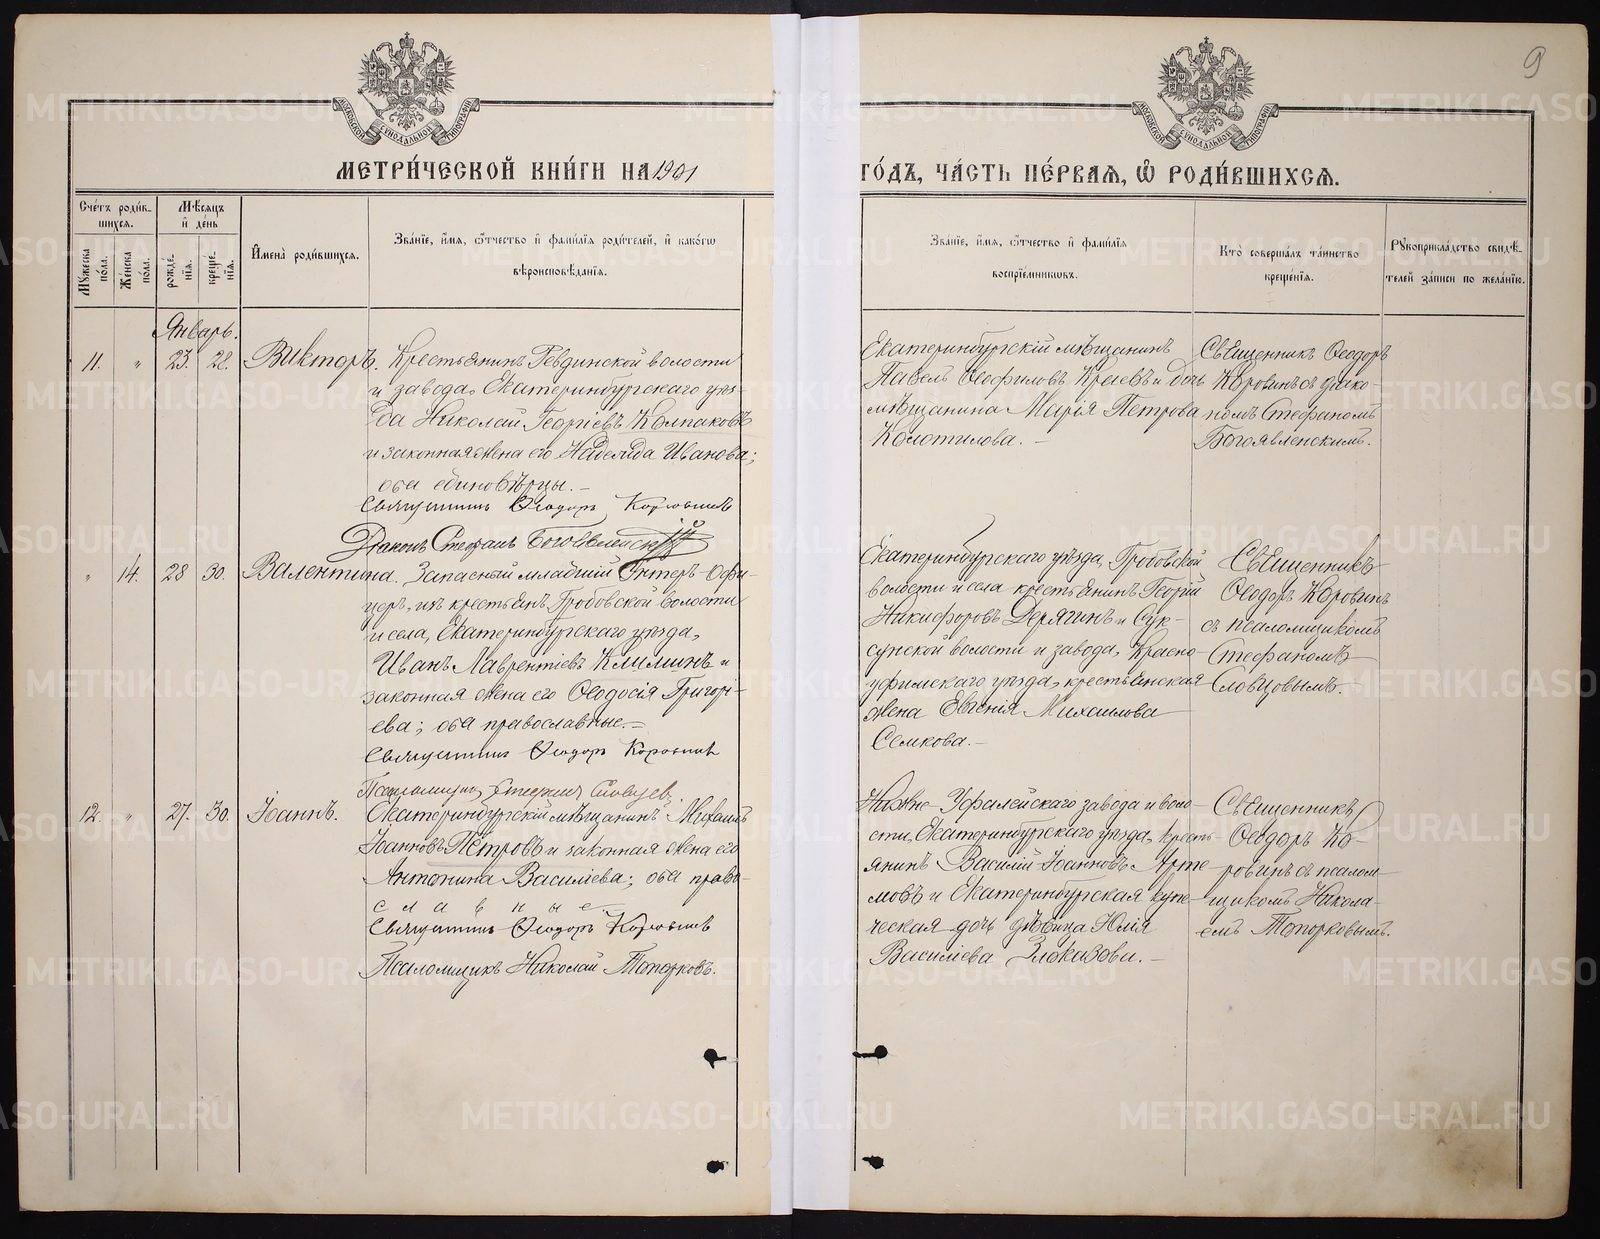 9
МОСКОВСКОЙ СѴНОДАЛЬНОЙ ТИПОГРАФІИ
МОСКОВСКОЙ СѴНОДАЛЬНОЙ ТИПОГРАФІИ
МЕТРИ́ЧЕСКОЙ КНИ́ГИ НА 1901
ГО́ДЪ, ЧА́СТЬ ПЕ́РВАѦ, Ѡ҆ РОДИ́ВШИХСѦ.
Сче́тъ роди́в-
шихсѧ.
Мꙋ́жеска
по́ла.
Же́нска
по́ла.
Мѣ́сѧцъ
и҆ де́нь
рожде́-
нїѧ.
креще́-
нїѧ.
И҆мена̀ роди́вшихсѧ.
Зва́нїе, и҆́мѧ, ѻ҆́тчество и҆ фами́лїѧ роди́телей, и҆ како́гѡ
вѣроисповѣ́данїѧ.
Зва́нїе, и҆́мѧ, ѻ҆́тчество и҆ фами́лїѧ
воспрїе́мникѡвъ.
Кто̀ соверша́лъ та́инство
креще́нїѧ.
Рꙋкоприкла́дство свидѣ́-
телей за́писи по жела́нїю.
Январь.
11. " 23. 28. Викторъ.
Крестьянинъ Ревдинской волости
и завода, Екатеринбургскаго уѣз-
да Николай Георгіевъ Колпаковъ
и законная жена его Надежда Иванова;
оба единовѣрцы.–
Священникъ Ѳеодоръ Коровинъ
Діаконъ Стефанъ Богоявленскій
Екатеринбургскій мѣщанинъ
Павелъ Ѳеофиловъ и дочь
мѣщанина Марія Петрова
Колотилова.–
Священникъ Ѳеодоръ
Коровинъ съ діако-
номъ Стефаномъ
Богоявленскимъ.
" 14. 28 30. Валентина.
Запасный младшій Унтеръ-Офи-
церъ, изъ крестьянъ Гробовской волости
и села, Екатеринбургскаго уѣзда,
Иванъ Лаврентіевъ Климинъ и
законная жена его Ѳеодосія Григорі-
ева; оба православные.–
Священникъ Ѳеодоръ Коровинъ
Псаломщикъ Стефанъ Словцовъ
Екатеринбургскаго уѣзда, Гробовской
волости и села крестьянинъ Георгій
Никифоровъ Дерягинъ и Сук-
сунской волости и завода, Красно-
уфимскаго уѣзда, крестьянская
жена Евгенія Михаилова
Семкова.–
Священникъ
Ѳеодоръ Коровинъ
съ псаломщикомъ
Стефаномъ
Словцовымъ.
12. " 27. 30. Іоаннъ.
Екатеринбургскій мѣщанинъ Михаилъ
Іоанновъ Петровъ и законная жена его
Антонина Василіева; оба право-
славные–
Священникъ Ѳеодоръ Коровинъ
Псаломщикъ Николай Топорковъ.
Нижне-Уфалейскаго завода и воло-
сти, Екатеринбургскаго уѣзда, кресть-
янинъ Василій Іоанновъ Арте-
мовъ и Екатеринбургская купе-
ческая дочь дѣвица Юлія
Василіева Злоказова.–
Священникъ
Ѳеодоръ Ко-
ровинъ съ псалом-
щикомъ Никола-
емъ Топорковымъ.
METRIKI.GASO-URAL.RU